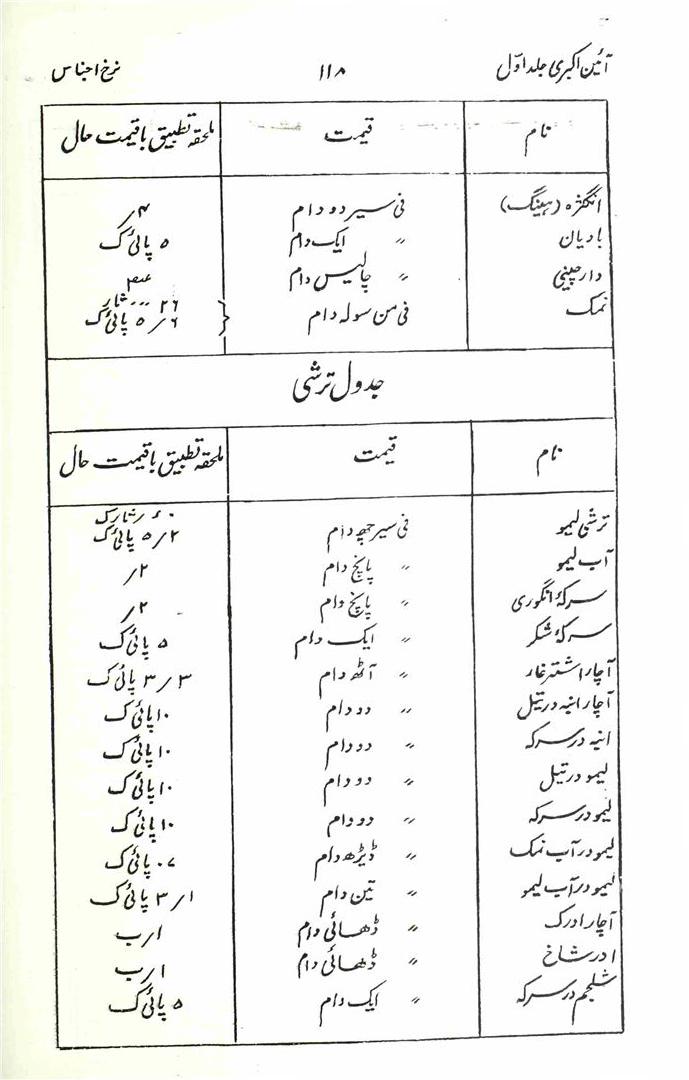 آئین اکبری جلد اوّل ۱۱۸ نرخ اجناس
نام قیمت ملحقہ تطبیق باقیمت حال
انگزہ (ہینگ) فی سیر دو دام ۴؍
بادیان 〃 ایک دام ۵ پائی ک
دارچینی 〃 چالیس دام
نمک فی من سولہ دام ۶؍ ۵ پائی ک
جدول ترشی
نام قیمت ملحقہ تطبیق باقیمت حال
ترشی لیمو فی سیر چھ دام ۲؍ ۵ پائی ک
آب لیمو 〃 پانچ دام ۲؍
سرکۂ انگوری 〃 پانچ دام ۲؍
سرکۂ شکر 〃 ایک دام ۵ پائی ک
آچار اشترغار 〃 آٹھ دام ۳؍ ۳ پائی ک
آچار انبہ در تیل 〃 دو دام ۱۰ پائی ک
انبہ در سرکہ 〃 دو دام ۱۰ پائی ک
لیمو در تیل 〃 دو دام ۱۰ پائی ک
لیمو در سرکہ 〃 دو دام ۱۰ پائی ک
لیمو در آب نمک 〃 ڈیڑھ دام ۰۷ پائی ک
لیمو در آب لیمو 〃 تین دام ۱؍ ۳ پائی ک
آچار ادرک 〃 ڈھائی دام ۱؍ ب
ادرشاخ 〃 ڈھائی دام ۱؍ ب
شلجم در سرکہ 〃 ایک دام ۵ پائی ک